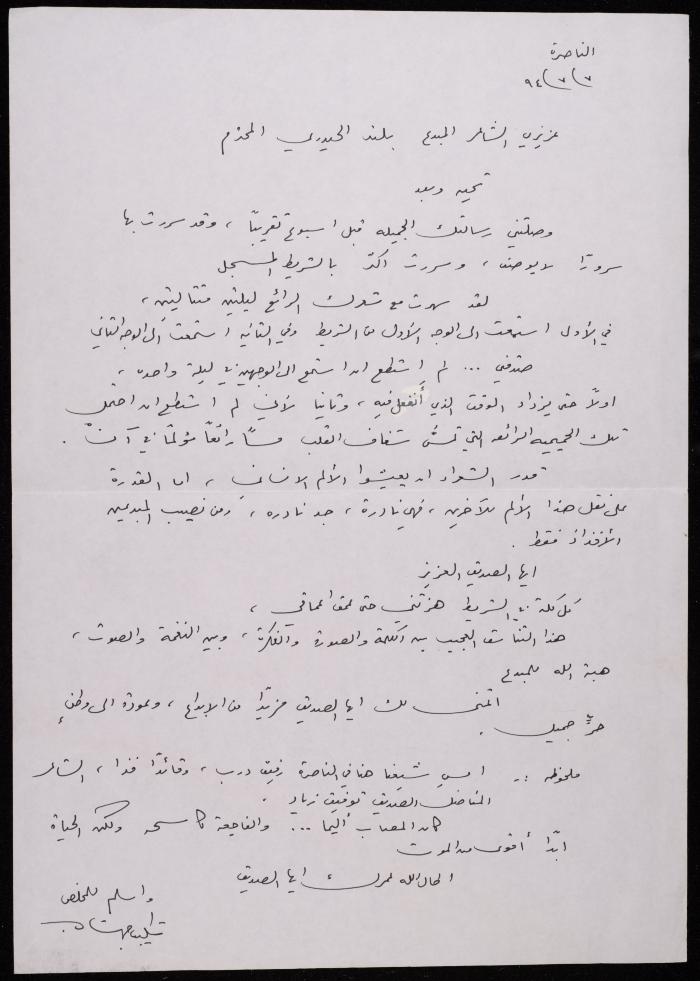 الناصرة
٧/٧/٩٤
عزيزي الشاعر المبدع بلند الحيدري المحترم
تحيه وبعد
وصلتني رسالتك الجميله قبل اسبوع تقريباً ، وقد سررت بها
سرورًا لا يوصف ، وسررت اكثر بالشريط المسجل
لقد سهرت مع شعرك الرائع ليلتين متتاليتين ،
في الأولى استمعت الى الوجه الأول من الشريط وفي الثانيه استمعت الى الوجه الثاني
صدقني ... لم استطع ان استمع الى الوجهين في ليلة واحده ،
اولاً حتى يزداد الوقت الذي أنفعل فيه ، وثانيا لأني لم استطع ان احتمل
تلك الحميميه الرائعه التي تمسّ شغاف القلب مسًا رائعًا مؤلمًا في آن .
قدر الشعراء ان يعيشوا الألم الانساني ، اما القدرة
على نقل هذا الألم للآخرين ، فهي نادرة ، جد نادره ، ومن نصيب المبدعين
الأفذاذ فقط .
ايها الصديق العزيز
كل كلمة في الشريط هزتني حتى عمق اعماقي ،
هذا التناسق العجيب بين الكلمة والصورة والفكرة ، وبين النغمة والصوت ،
هبة الله للمبدع
اتمنى لك ايها الصديق مزيدًا من الإبداع ، وعودة الى وطنٍ
حرٍّ جميل .
ملحوظه :- امس شيعنا هنا في الناصرة رفيق درب ، وقائدًا فذا ، الشاعر
المناضل الصديق توفيق زياد .
كان المصاب أليما ... والفاجعة كاسحه ولكن الحياة
ابدًا أقوى من الموت
اطال الله عمرك ايها الصديق
واسلم للمخلص